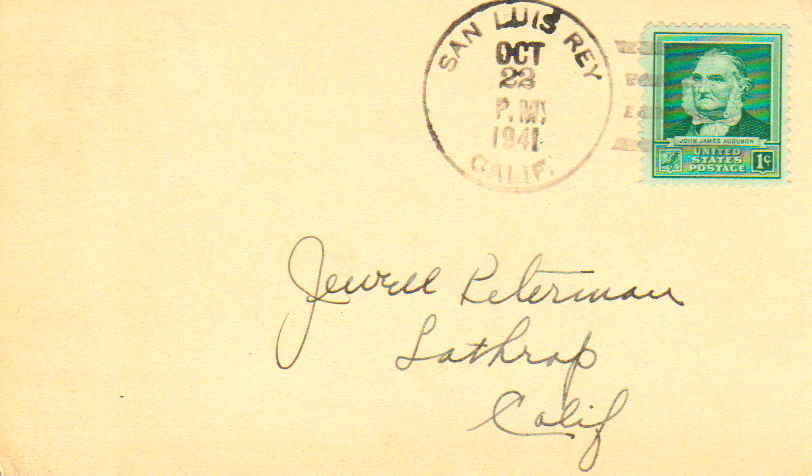 SAN LUIS REY
OCT
22
P.M.
1941
CALIF.
JOHN JAMES AUDUBON
UNITED
STATES
POSTAGE
1¢
Jewell Peterman
Lathrop
Calif